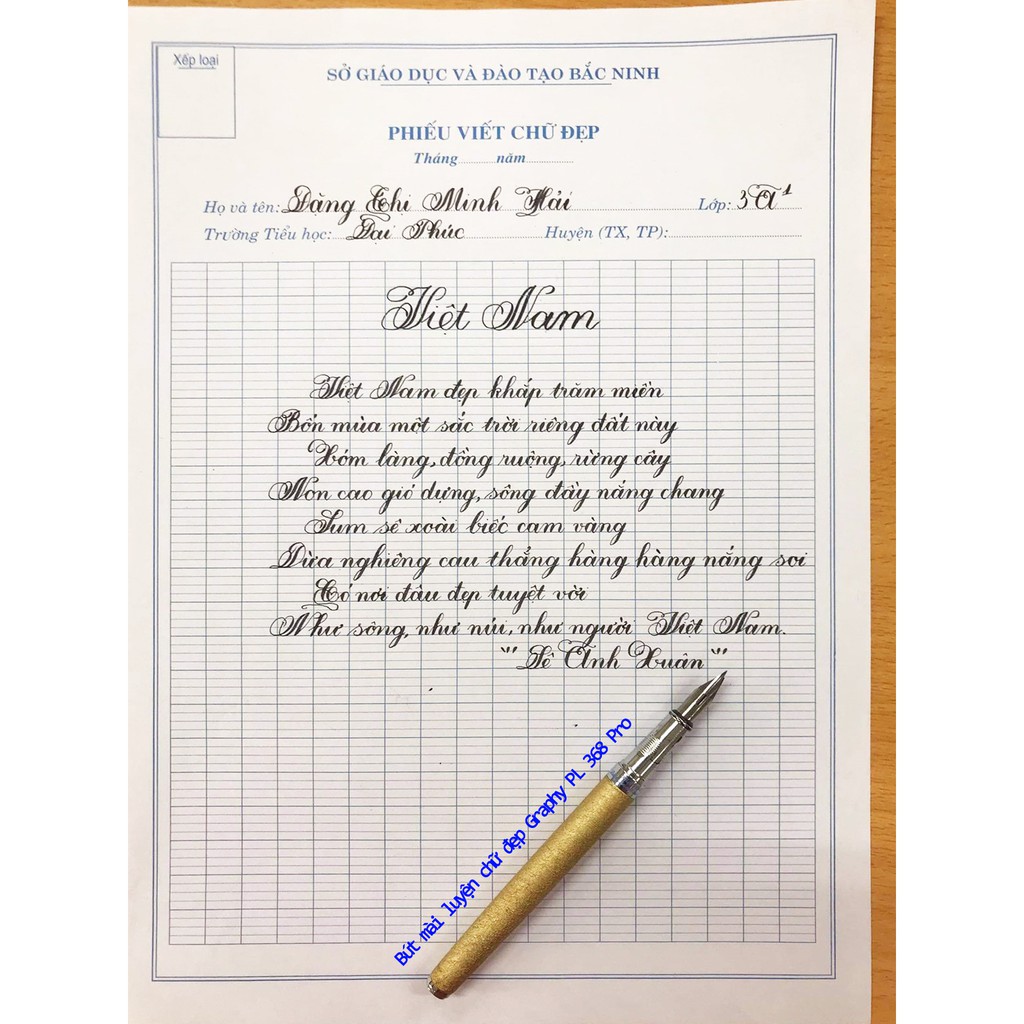 Xếp loại
SỞ GIÁO DỤC VÀ ĐÀO TẠO BẮC NINH
PHIẾU VIẾT CHỮ ĐẸP
Tháng............năm...............
Họ và tên: Đặng Thị Minh Hải Lớp: 3A1
Trường Tiểu học: Đại Phúc Huyện (TX, TP):
Việt Nam
Việt Nam đẹp khắp trăm miền
Bốn mùa một sắc trời riêng đất này
Xóm làng, đồng ruộng, rừng cây
Non cao gió dựng, sông đầy nắng chang
Sum sê xoài biếc cam vàng
Dừa nghiêng cau thẳng hàng hàng nắng soi
Có nơi đâu đẹp tuyệt vời
Như sông, như núi, như người Việt Nam.
"Lê Anh Xuân"
Bút mài luyện chữ đẹp Graphy PL 368 Pro